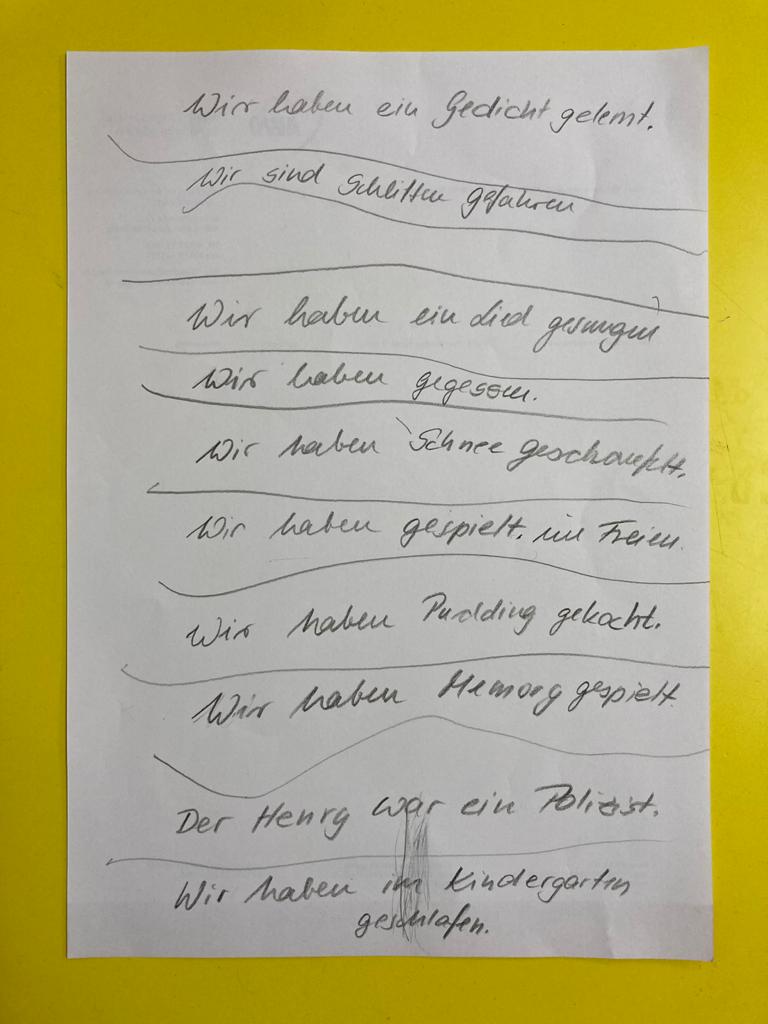 Wir haben ein Gedicht gelernt.
Wir sind Schlitten gefahren
Wir haben ein Lied gesungen
Wir haben gegessen.
Wir haben Schnee geschaufelt.
Wir haben gespielt. im Freien.
Wir haben Pudding gekocht.
Wir haben Memory gespielt.
Der Henry war ein Polizist.
Wir haben im Kindergarten
geschlafen.